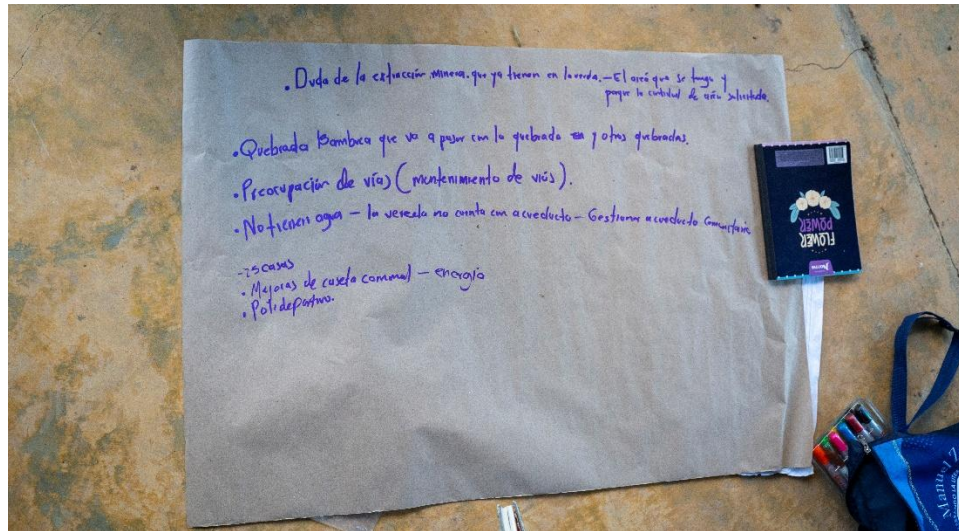 . Duda de la extracción minera. que ya tienen en la vereda. – El area que se tenga y
porque la cantidad de años solicitada.
. Quebrada Bambuca que va a pasar con la quebrada y otras quebradas.
. Preocupación de vías (mantenimiento de vias).
. No tienen agua – la vereda no cuenta con acueducto – Gestionar acueducto comunitario
- 25 casas
. Mejoras de caseta comunal – energia
. Polideportivo.
FLOWER
POWER
Manuel